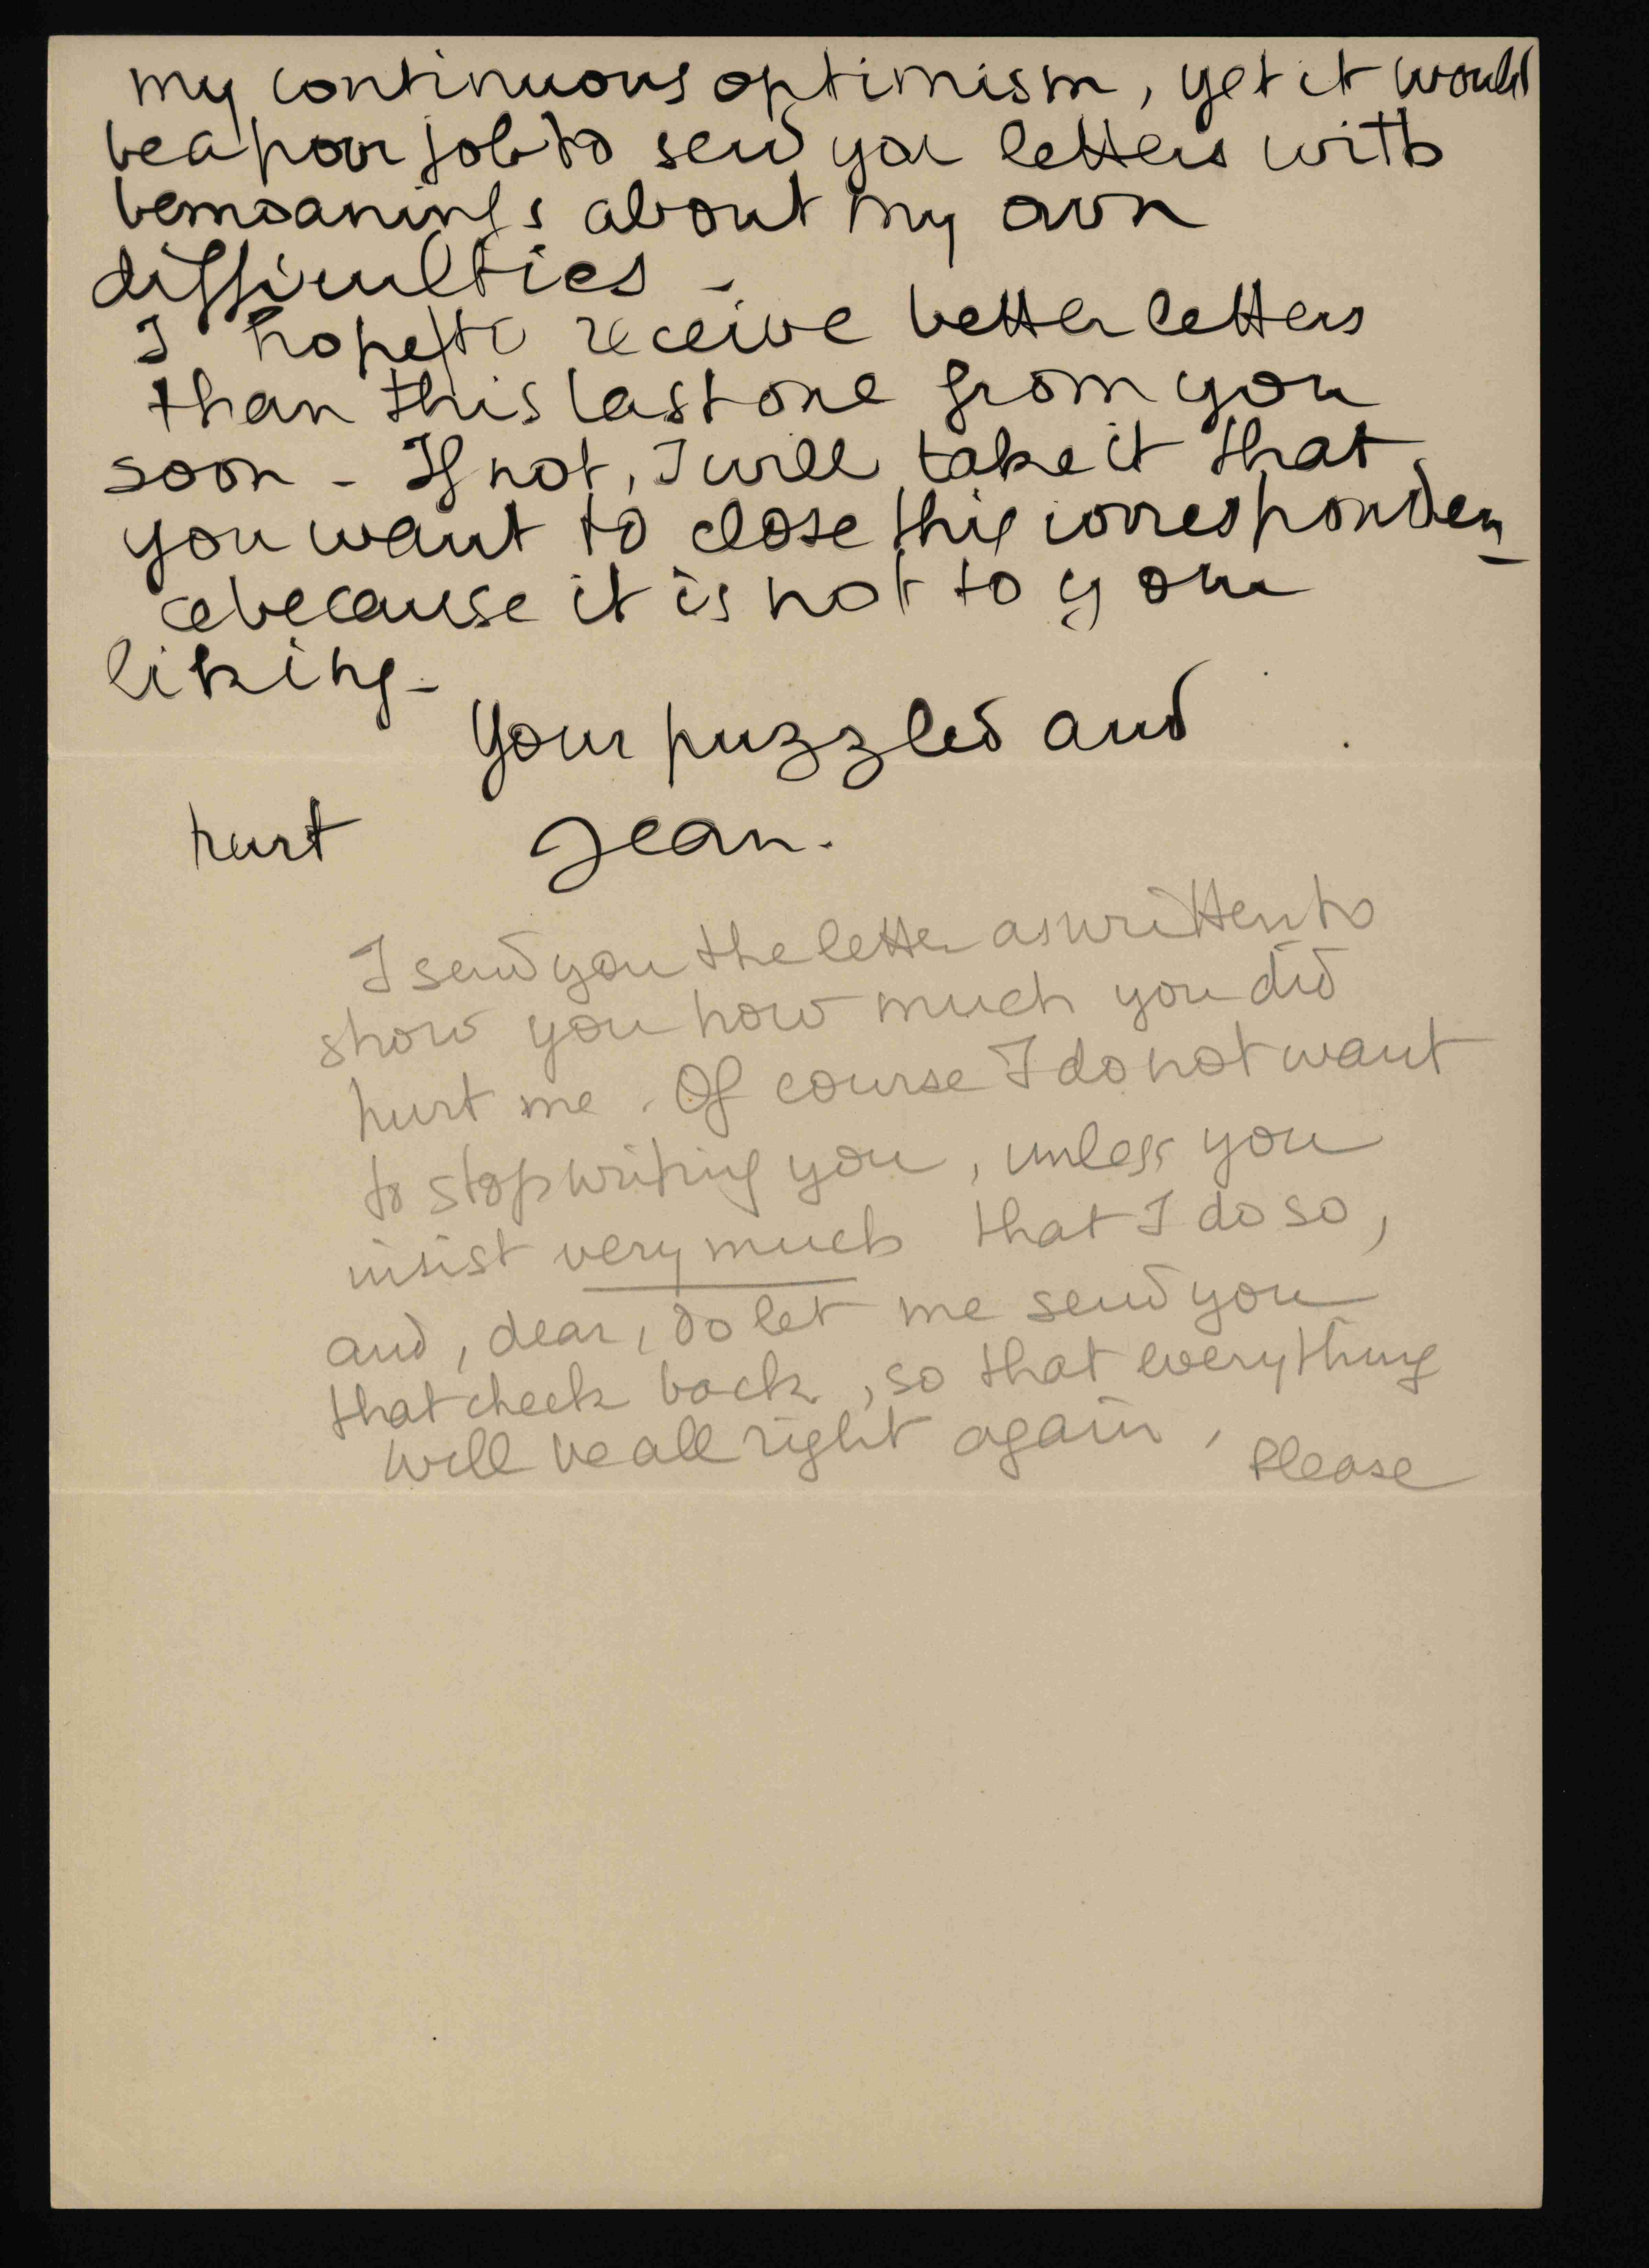 my continuous optimism, yet it would
be a poor job to send you letters with
bemoanings about my own
difficulties -
I hope to receive better letters
than this last one from you
soon - If not, I will take it that
you want to close this corresponden_
ce because it is not to your
liking -
Your puzzled and
hurt Jean.
I send you the letter as written to
show you how much you did
hurt me. Of course I do not want
to stop writing you, unless you
insist very much that I do so,
and, dear, do let me send you
that check back, so that everything
will be all right again, Please